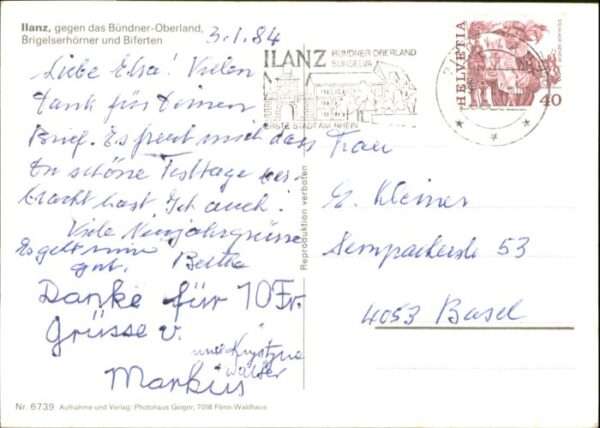 Ilanz, gegen das Bündner-Oberland,
Brigelserhörner und Biferten
3.1.84
Liebe Elsa! Vielen
Dank für Deinen
Brief. Es freut mich dass
Du schöne Festtage ver-
bracht hast Ich auch!
Viele Neujahrsgrüsse
Es geht mir
gut.
Danke für 10 Fr.
Grüsse v.
und Krystyna
Walter
Markus
Nr. 6739 Aufnahme und Verlag: Photohaus Geiger, 7018 Flims-Waldhaus
Reproduktion verboten
ILANZ BÜNDNER OBERLAND
SURSELVA
ERSTE STADT AM RHEIN
HELVETIA
40
Frau
E. Kleiner
Sempacherstr 53
4053 Basel